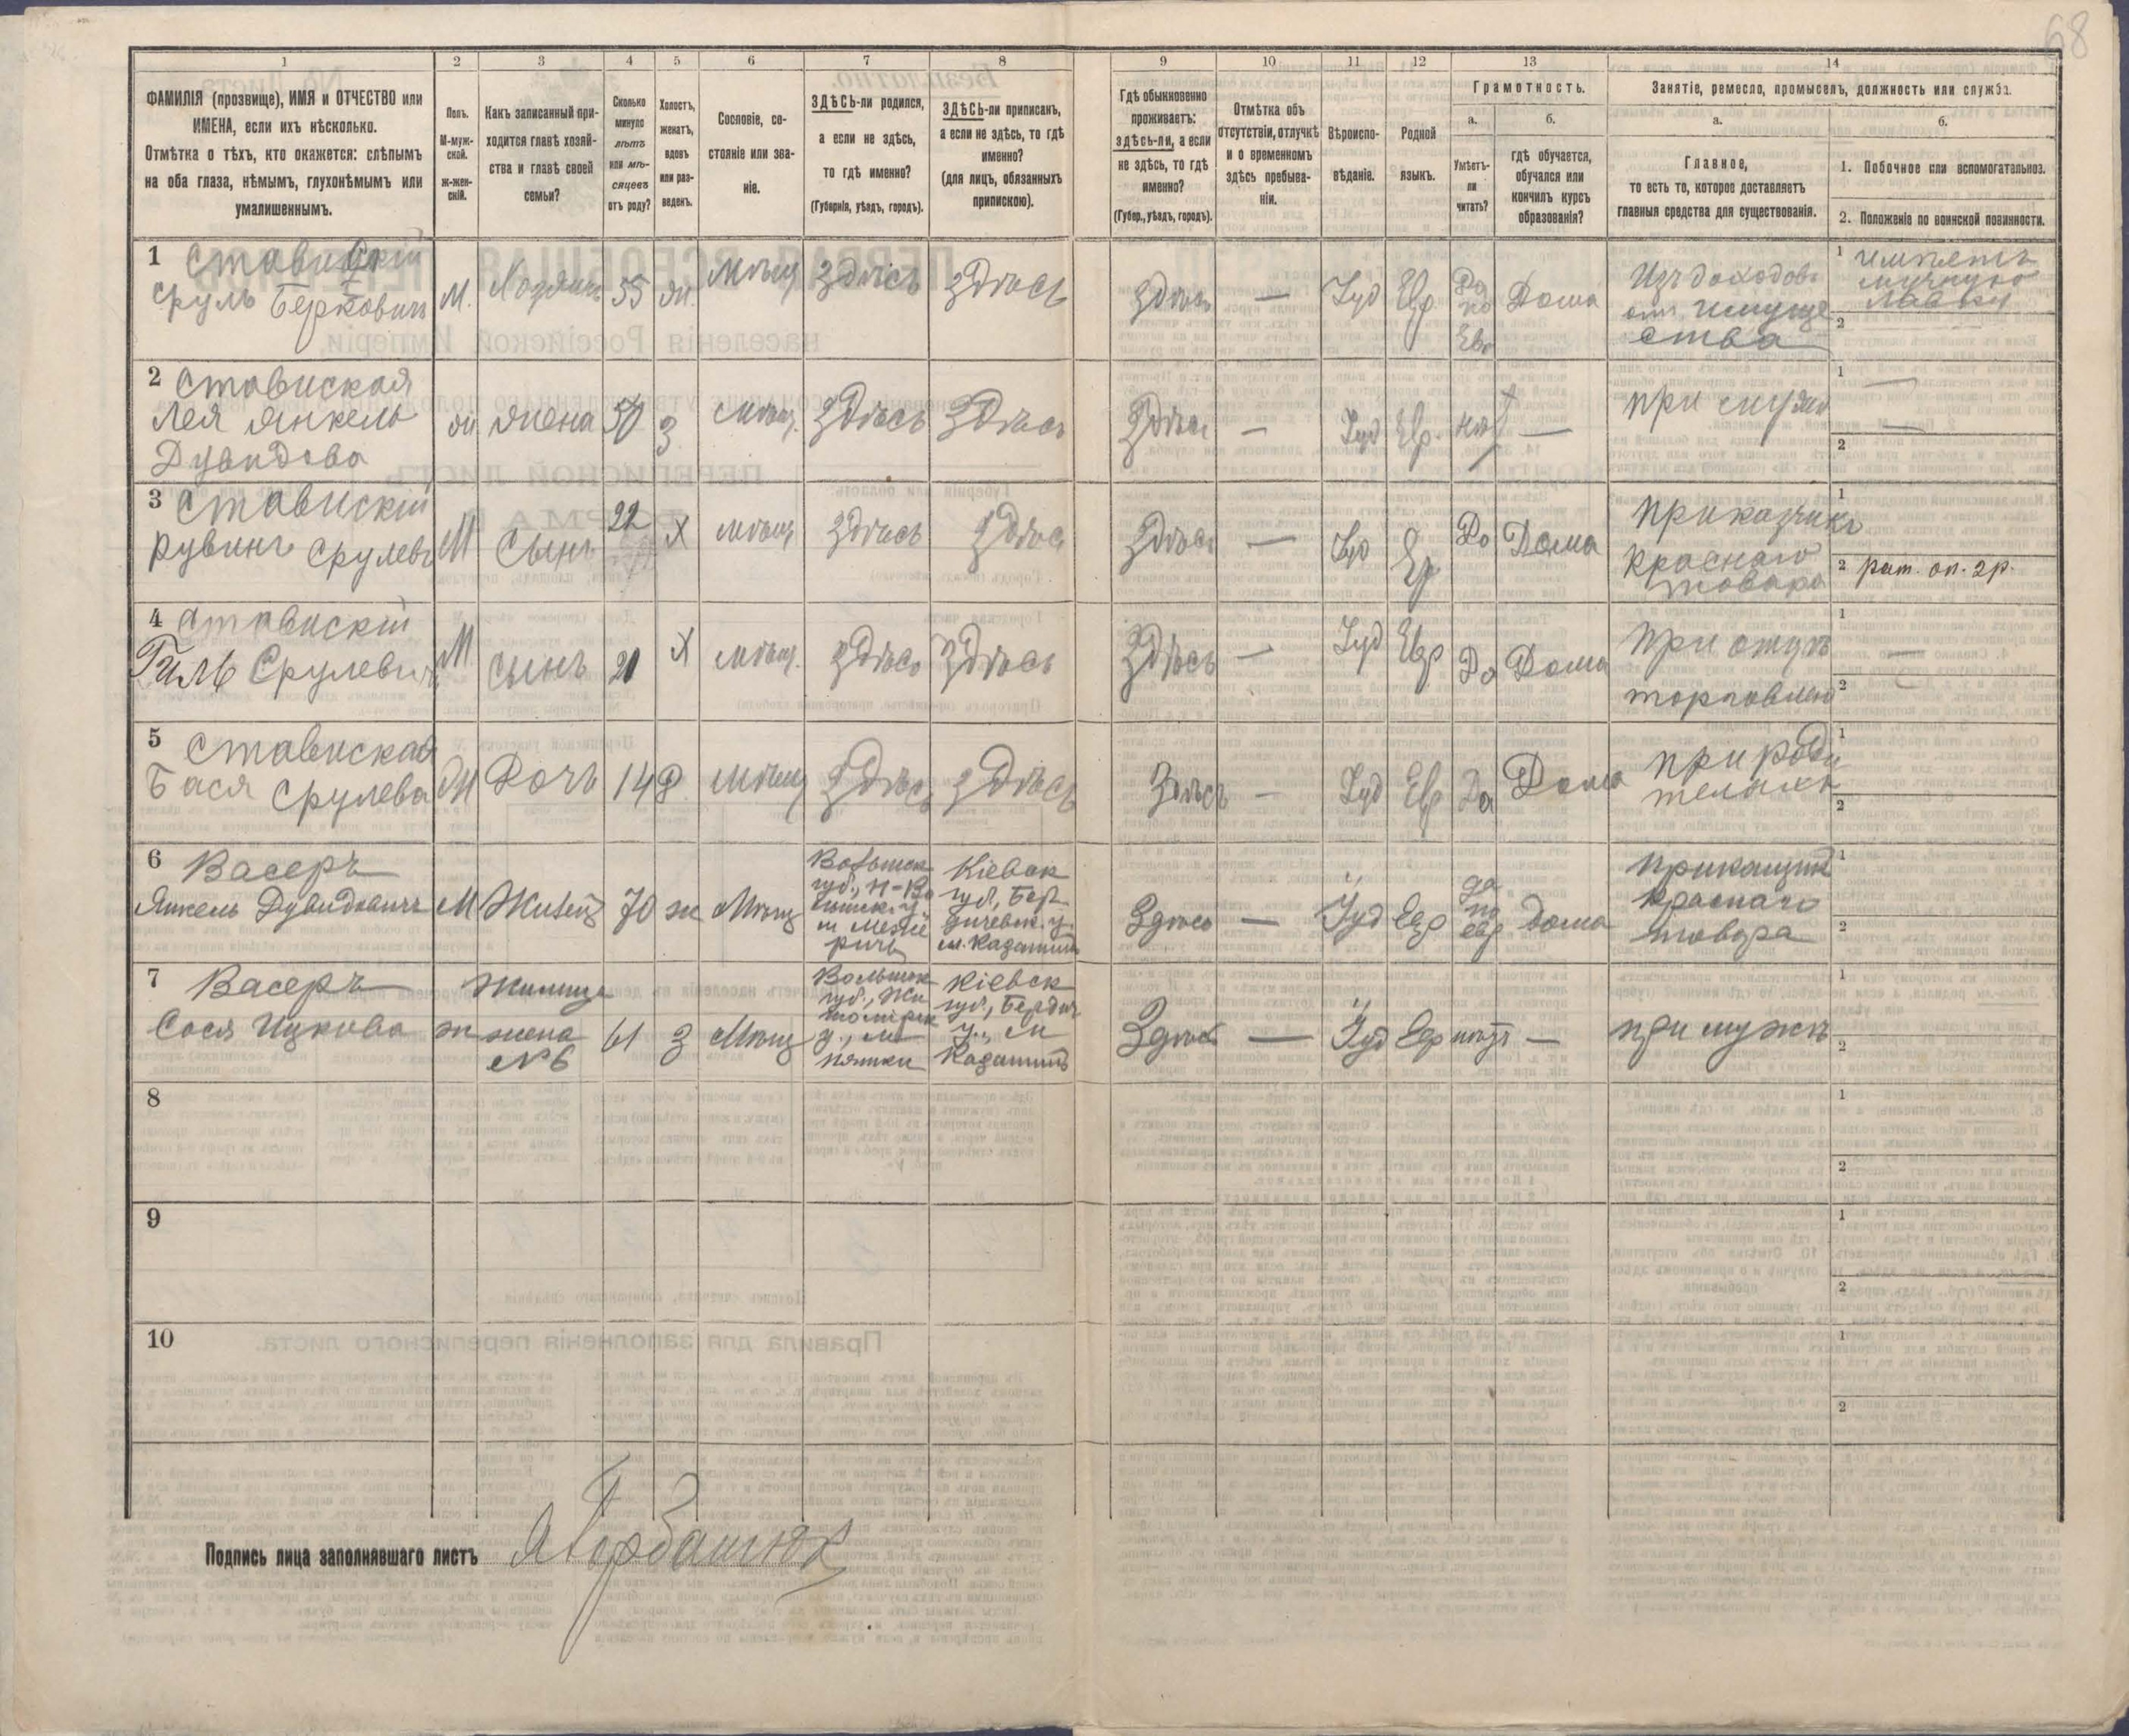 68
1
2
3
4
5
6
7
8
9
10
11
12
13
14
ФАМИЛІЯ (прозвище), ИМЯ и ОТЧЕСТВО или
ИМЕНА, если ихъ нѣсколько.
Отмѣтка о тѣхъ, кто окажется: слѣпымъ
на оба глаза, нѣмымъ, глухонѣмымъ или
умалишеннымъ.
Полъ.
М-муж-
ской.
ж-жен-
скій.
Какъ записанный при-
ходится главѣ хозяй-
ства и главѣ своей
семьи?
Сколько
минуло
лѣтъ
или мѣ-
сяцевъ
отъ роду?
Холостъ,
женатъ,
вдовъ
или раз-
веденъ.
Сословіе, со-
стояніе или зва-
ніе.
ЗДѢСЬ-ли родился,
а если не здѣсь,
то гдѣ именно?
(Губернія, уѣздъ, городъ).
ЗДѢСЬ-ли приписанъ,
а если не здѣсь, то гдѣ
именно?
(для лицъ, обязанныхъ
припискою).
Гдѣ обыкновенно
проживаетъ:
здѣсь-ли, а если
не здѣсь, то гдѣ
именно?
(Губер., уѣздъ, городъ).
Отмѣтка объ
отсутствіи, отлучкѣ
и о временномъ
здѣсь пребыва-
ніи.
Вѣроиспо-
вѣданіе.
Родной
языкъ.
Грамотность.
а.
Умѣетъ-
ли
читать?
б.
гдѣ обучается,
обучался или
кончилъ курсъ
образованія?
Занятіе, ремесло, промыселъ, должность или служба.
а.
Главное,
то есть то, которое доставляетъ
главныя средства для существованія.
б.
1. Побочное или вспомогательное.
2. Положеніе по воинской повинности.
1 Ставискій
Сруль Берковичъ
М. Хозяинъ 55 ж. Мѣщ Здѣсь Здѣсь
Здѣсь — Іуд Евр Да по Евр Дома
Изъ доходовъ
отъ имуще
ства
1 имѣетъ
мучную
лавку
2
2 Ставиская
Лея Янкель
Дувидова
ж жена 50 З Мѣщ. Здѣсь Здѣсь
Здѣсь — Іуд Евр. нѣт —
при мужѣ
1 —
2
3 Ставискій
Рувинъ Срулевъ
М Сынъ 22 Х мѣщ Здѣсь Здѣсь
Здѣсь — Іуд Евр Да Дома
приказчикъ
краснаго
товара
1
2 рат. оп. 2 р.
4 Ставискій
Гиль Срулевичъ
М сынъ 21 Х мѣщ. Здѣсь Здѣсь
Здѣсь — Іуд Евр Да Дома
При отцѣ
торговлей
1 —
2
5 Ставиская
Бася Срулева
Ж Дочь 14 Мѣщ Здѣсь Здѣсь
Здѣсь — Іуд Евр Да Дома
при роди
теляхъ
1
2
6 Васеръ
Янкель Дувидовичъ
М 70 ж Мѣщ
м Межи
ричъ
Кіевск
губ., Бер
дичевск. у.
м. Казатинъ
Здѣсь — Іуд Евр да по евр дома
прикащик
краснаго
товара
1
2
7 Васеръ
Сося Ицкова
ж
Жилица
жена
№ 6
61 З Мѣщ
Волынск
губ., Жи
томірск
у., м
Пятки
Кіевск
губ., Бердич
у., м
Казатинъ
Здѣсь — Іуд Евр нѣтъ —
при мужѣ
1
2
8
1
2
9
1
2
10
1
2
Подпись лица заполнявшаго листъ